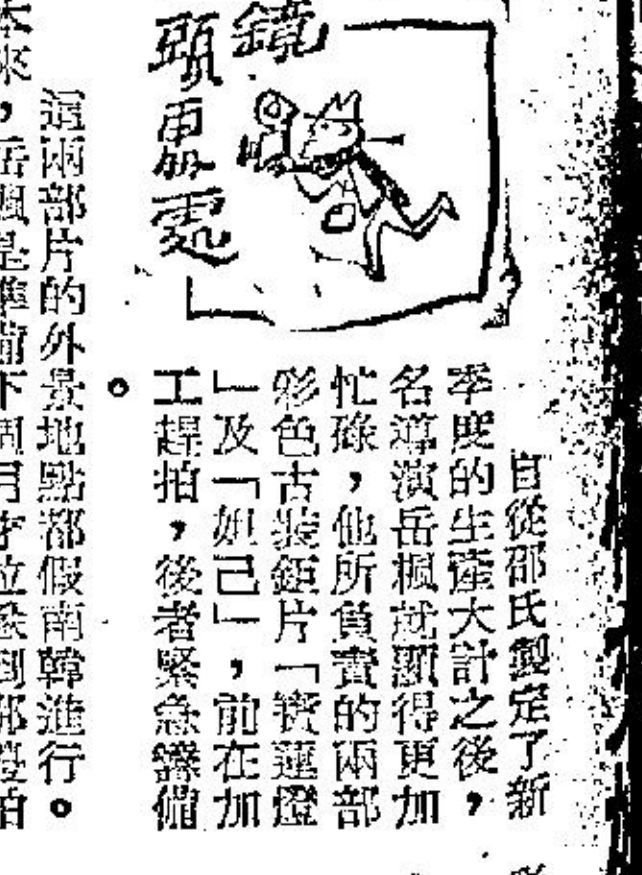 鏡頭
自從邵氏製定了新
季度的生產大計之後，
名導演岳楓就顯得更加
忙碌，他所負責的兩部
彩色古裝鉅片「寶蓮燈
」及「妲己」，前在加
工趕拍，後者緊急籌備
。
這兩部片的外景地點都假南韓進行。
本來，岳楓是準備下個月才拉隊到那邊拍